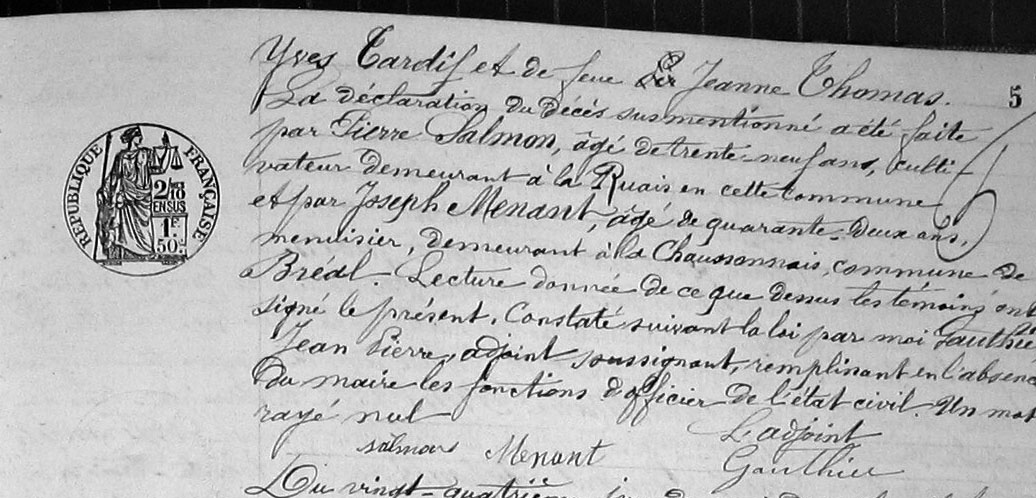 Yves Tardif et de feue Jeanne Thomas. 5
La déclaration du décès susmentionné a été faite
par Pierre Salmon, âgé de trente-neuf ans, culti-
vateur demeurant à la Ruais en cette commune
et par Joseph Menant, âgé de quarante-deux ans,
menuisier, demeurant à la Chaussonnais, commune de
Bréal. Lecture donnée de ce que dessus les témoins ont
signé le présent. Constaté suivant la loi par moi Gauthier
Jean Pierre, adjoint soussignant, remplinant en l'absence
du maire les fonctions d'officier de l'état civil. Un mot
rayé nul
L'adjoint
Salmon Menant Gauthier
Du vingt-quatrième
RÉPUBLIQUE FRANÇAISE
2/10
EN SUS
1F.
50c.